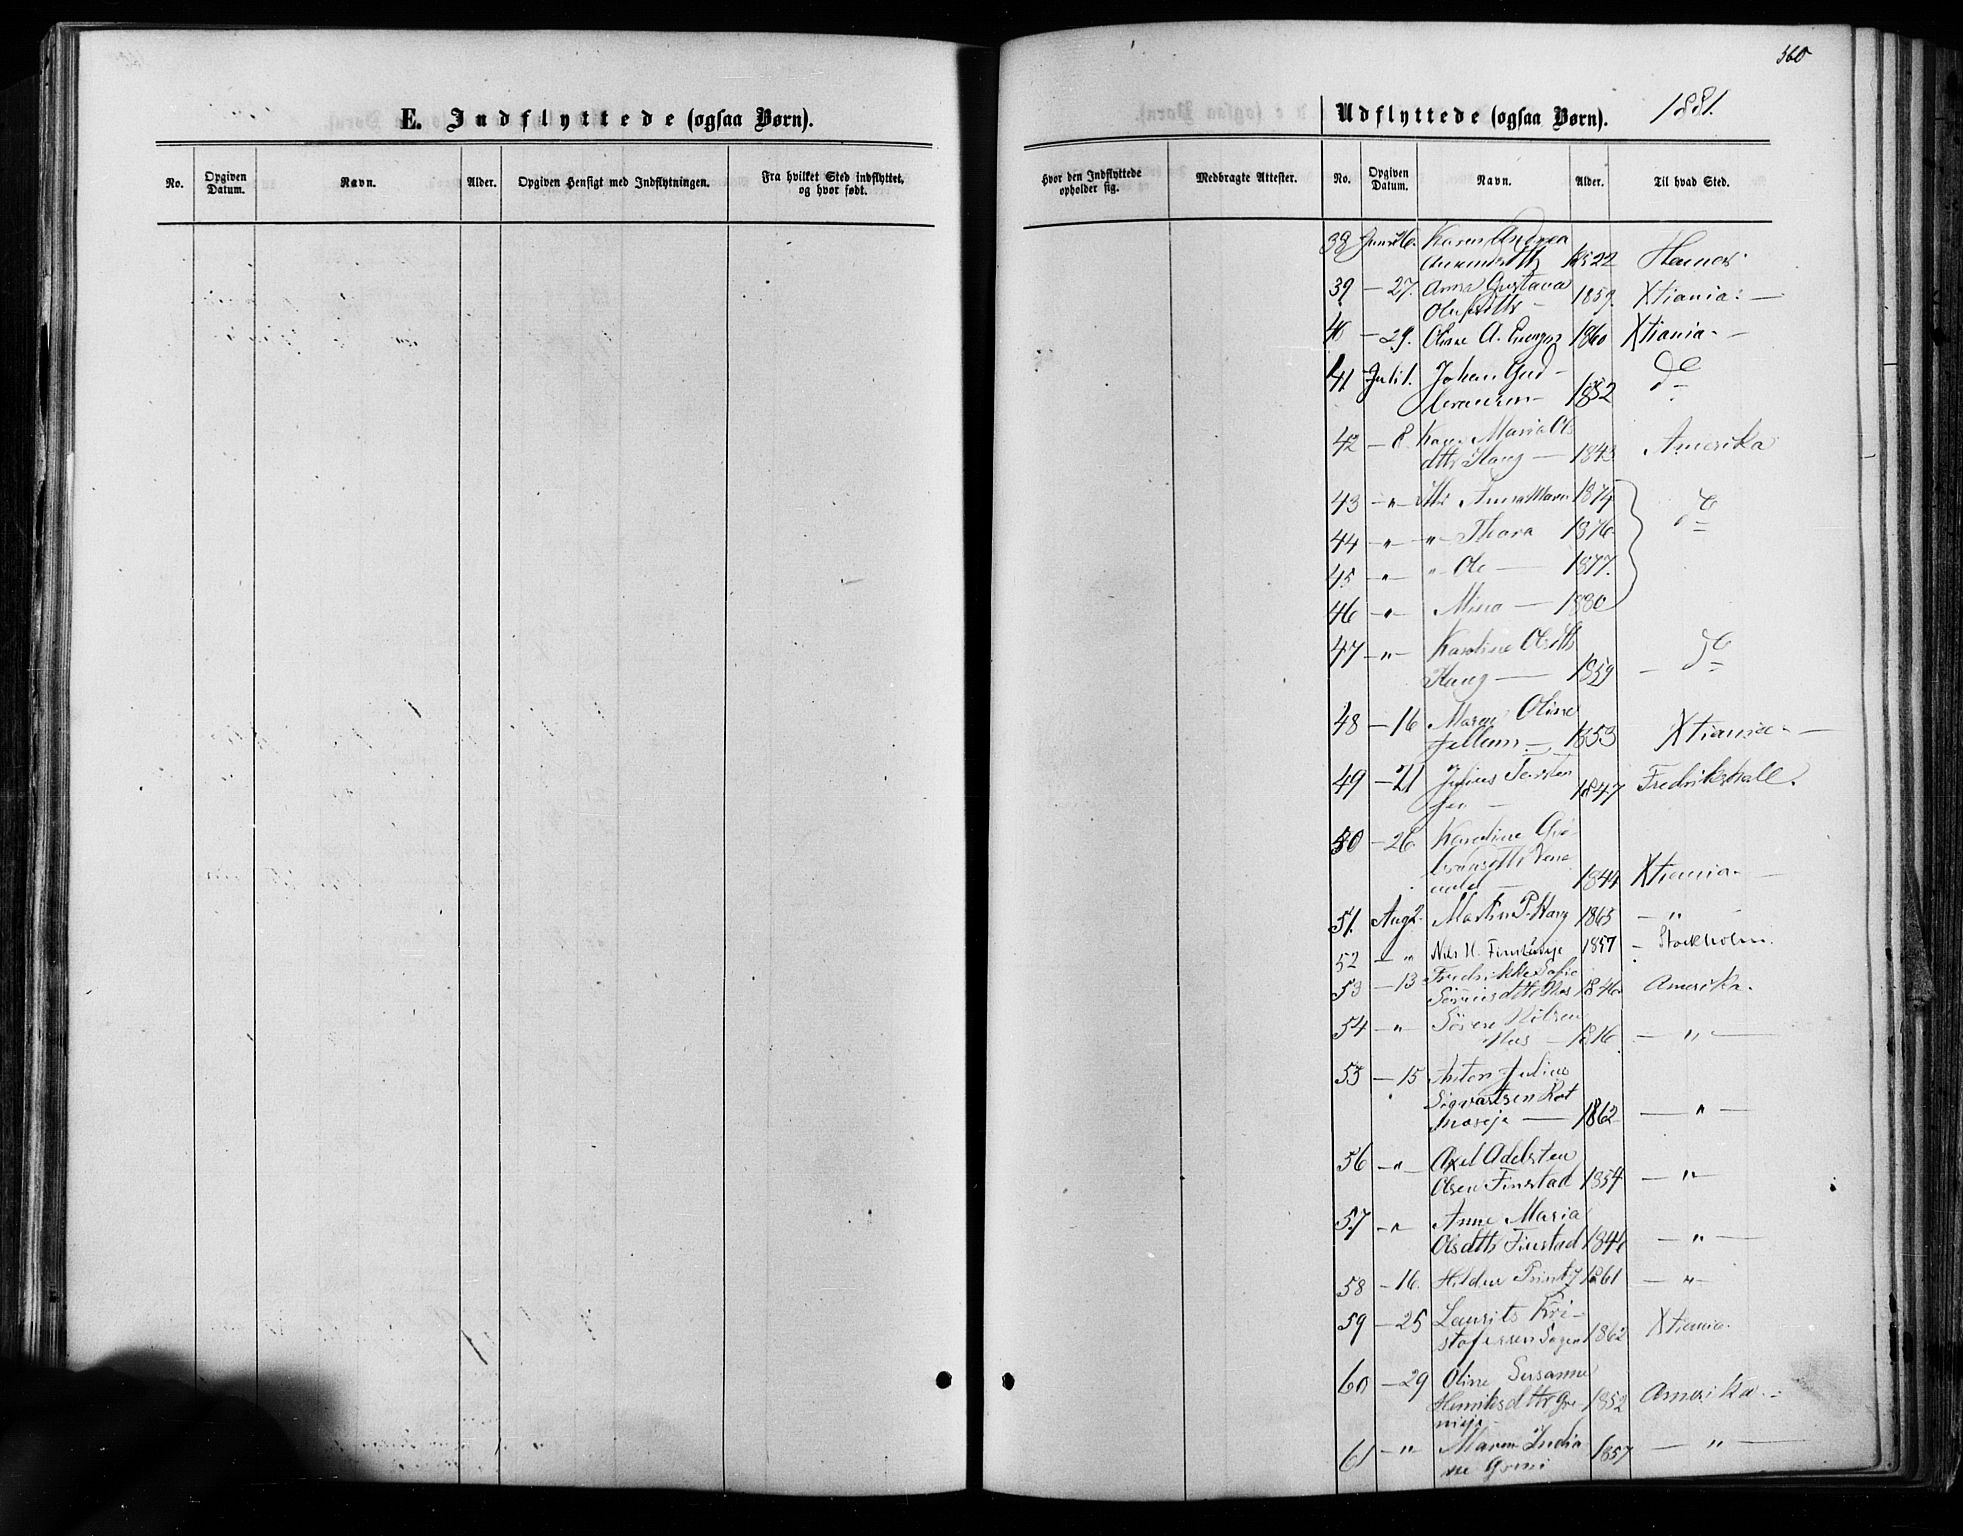 560
E. Indflyttede (ogsaa Børn).
Udflyttede (ogsaa Børn). 1881.
No. Opgiven Datum. Navn. Alder. Opgiven Hensigt med Indflytningen. Fra hvilket Sted indflyttet, og hvor født.
Hvor den Indflyttede opholder sig. Medbragte Attester. No. Opgiven Datum. Navn. Alder. Til hvad Sted.
38 Juni 26. Karen Andrea
1852 Hamar
39 — 27. Anna Gustava 1859. Xtiania. —
40 — 29. Oline A. 1860 Xtiania. —
41 Juli 1. Johan Gud-
bransen — 1852 do
42 — 8. Karen Maria Ols
dttr Haug — 1843 Amerika
43 — " — Anna Maria 1874
44 — " — " — Thora 1876 do
45 — " — " Ole — 1877.
46 — " — Mina — 1880
47 — " — Karoline Olsdttr
Haug — 1859 — do
48 — 16 Maren Oline
— 1853 Xtiania. —
49 — 21 Julius Torsten
sen — 1847 Fredrikshall.
50 — 26 Karoline Gu-
bransdttr
1844 Xtiania. —
51. Aug 2. Martin P. Haug 1863 — " —
52 — " Nils H. 1857 — Stockholm.
53 — 13 Fredrikke Sofie
Sörensdttr Mos 1846 Amerika.
54 — " — Sören Nilsen
Mos — 1816 — " —
55 — 15 Anton Julius
Sigvartsen Rot
naseje — 1862 — " —
56 — " — Axel Adelsten
Olsen Finstad 1854 — " —
57 — " — Anne Maria
Olsdttr Finstad 1846 — " —
58 — 16. Hilda Printz 1861 — " —
59 — 25 Laurits Kri-
stofersen 1862 Xtiania.
60 — 29 Oline Susanne
Henriksdttr Gri- 1852 Amerika. —
nieje —
61 — " — Maren India
ne Grini 1857 — " —